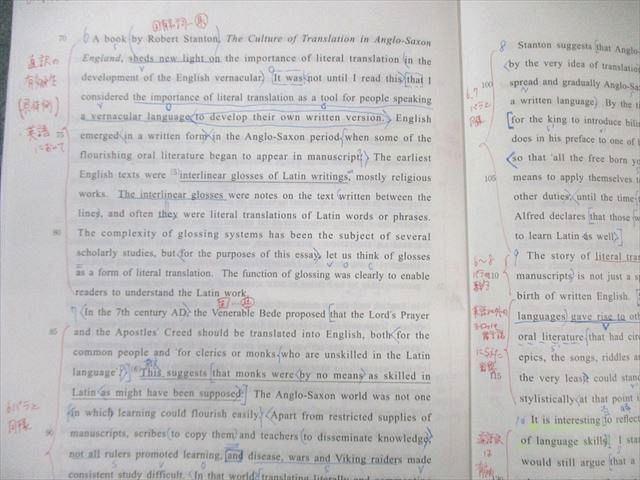 70 6 A book by Robert Stanton, The Culture of Translation in Anglo-Saxon
England, sheds new light on the importance of literal translation in the
development of the English vernacular. It was not until I read this that I
considered the importance of literal translation as a tool for people speaking
a vernacular language to develop their own written version. English
75 emerged in a written form in the Anglo-Saxon period, when some of the
flourishing oral literature began to appear in manuscript. The earliest
English texts were (5) interlinear glosses of Latin writings, mostly religious
works. The interlinear glosses were notes on the text written between the
lines, and often they were literal translations of Latin words or phrases.
80 The complexity of glossing systems has been the subject of several
scholarly studies, but for the purposes of this essay, let us think of glosses
as a form of literal translation. The function of glossing was clearly to enable
readers to understand the Latin work.
7 In the 7th century AD, the Venerable Bede proposed that the Lord's Prayer
85 and the Apostles' Creed should be translated into English, both for the
common people and 'for clerics or monks who are unskilled in the Latin
language'. (6) This suggests that monks were by no means as skilled in
Latin as might have been supposed. The Anglo-Saxon world was not one
in which learning could flourish easily. Apart from restricted supplies of
90 manuscripts, scribes to copy them and teachers to disseminate knowledge,
not all rulers promoted learning, and disease, wars and Viking raiders made
consistent study difficult. In that world, translating literally and commenting
直訳の
英語
において
8 Stanton suggests that Anglo-Sa
by the very idea of translation
100 spread and gradually Anglo-Sa
a written language. By the
for the king to introduce biling
does in his preface to one of
so that 'all the free born yo
105 means to apply themselves to
other duties, until the time
Alfred declares that those w
to learn Latin as well.
9 The story of literal tran
110 manuscripts is not just a s
birth of written English.
languages gave rise to oth
oral literature that had circ
epics, the songs, riddles an
115 the very least could stand
stylistically at that point i
10 It is interesting to reflect
of language skill. I sta
would still argue that a